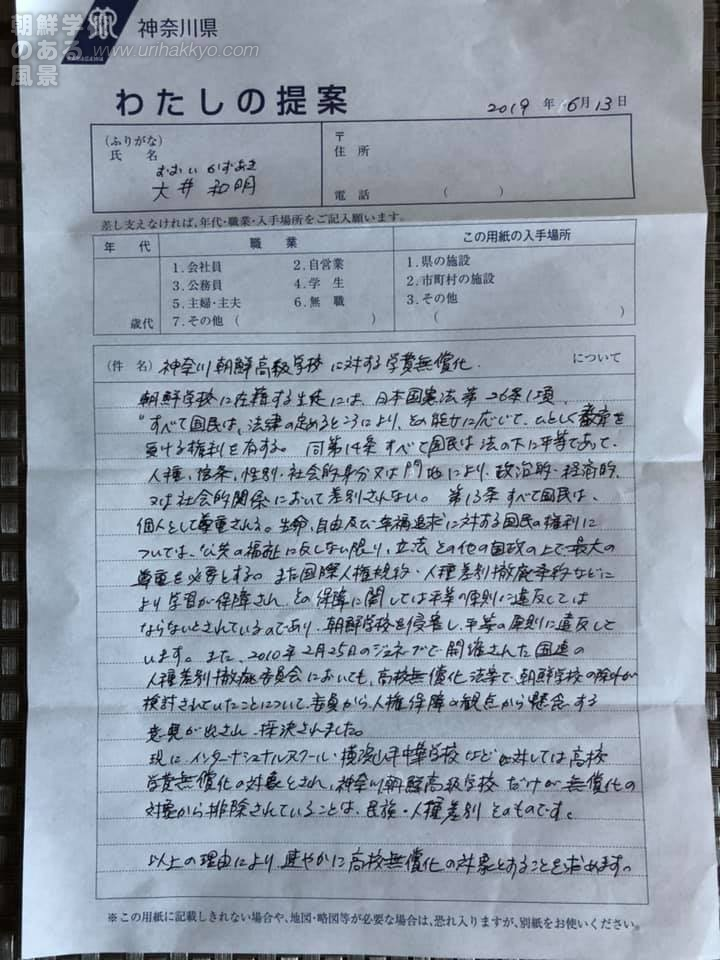 朝鮮学校のある風景
www.urihakkyo.com
KANAGAWA
神奈川県
わたしの提案
2019 年 6月 13日
(ふりがな)
氏 名
おおい かずあき
大井 和明
〒
住 所
電 話 ( )
差し支えなければ、年代・職業・入手場所をご記入願います。
年 代
歳代
職 業
1.会社員 2.自営業
3.公務員 4.学 生
5.主婦・主夫 6.無 職
7.その他 ( )
この用紙の入手場所
1.県の施設
2.市町村の施設
3.その他
( )
(件 名) 神奈川朝鮮高級学校に対する学費無償化 について
朝鮮学校に在籍する生徒には、日本国憲法第26条1項
"すべて国民は、法律の定めるところにより、その能力に応じて、ひとしく教育を
受ける権利を有する。 同第14条 すべて国民は法の下に平等であって、
人種、信条、性別、社会的身分又は門地により、政治的・経済的、
又は社会的関係において差別されない。 第13条 すべて国民は、
個人として尊重される。生命、自由及び幸福追求に対する国民の権利に
ついては、公共の福祉に反しない限り、立法その他の国政の上で最大の
尊重を必要とする。また国際人権規約・人種差別撤廃条約などに
より学習が保障され、その保障に関しては平等の原則に違反しては
ならないとされているのであり、朝鮮学校を侵害し、平等の原則に違反して
います。また、2010年2月25日のジュネーブで開催された国連の
人種差別撤廃委員会においても、高校無償化法案で、朝鮮学校の除外が
検討されていたことについて委員から、人権保障の観点から懸念する
意見が出され、採決されました。
現に インターナショナルスクール・横浜山手中華学校など に対しては高校
学費無償化の対象とされ、神奈川朝鮮高級学校だけが無償化の
対象から排除されていることは、民族・人種差別そのものです。
以上の理由により、速やかに高校無償化の対象とすることを求めます。
※この用紙に記載しきれない場合や、地図・略図等が必要な場合は、恐れ入りますが、別紙をお使いください。